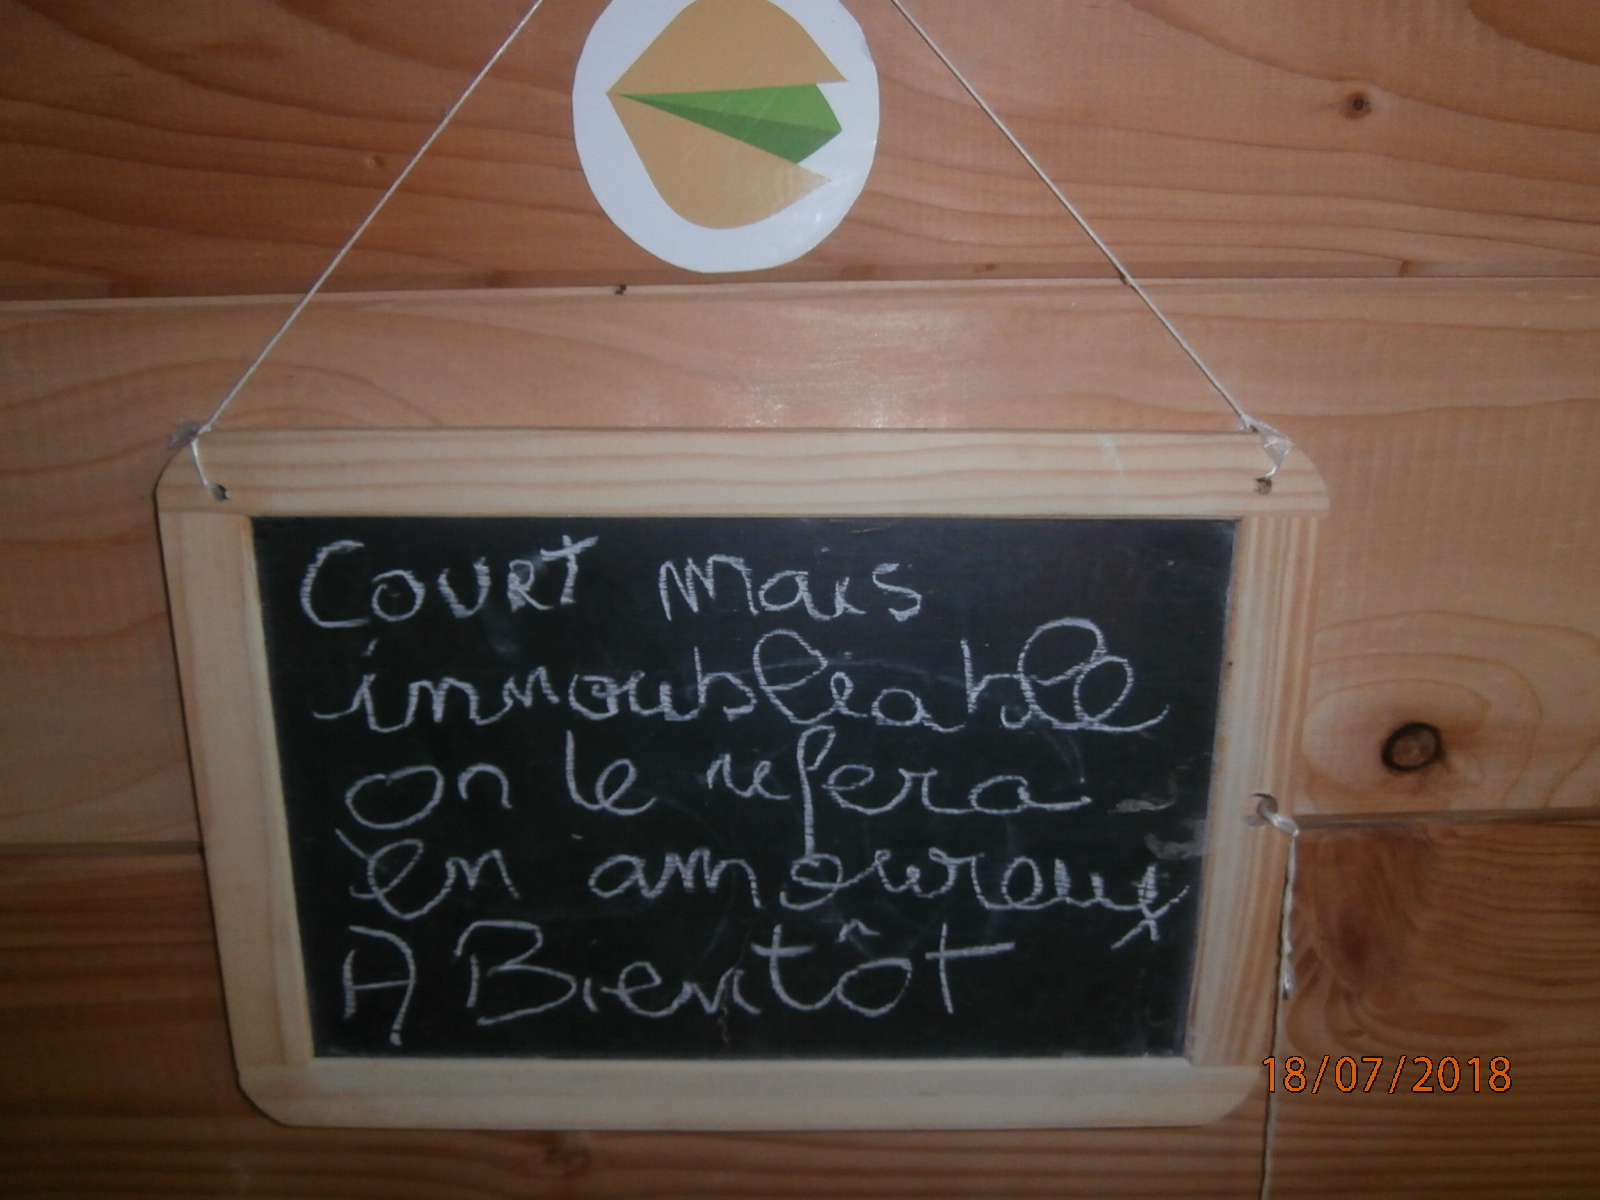 Court mais
innoubliable
on le refera
en amoureux
A Bientôt
18/07/2018